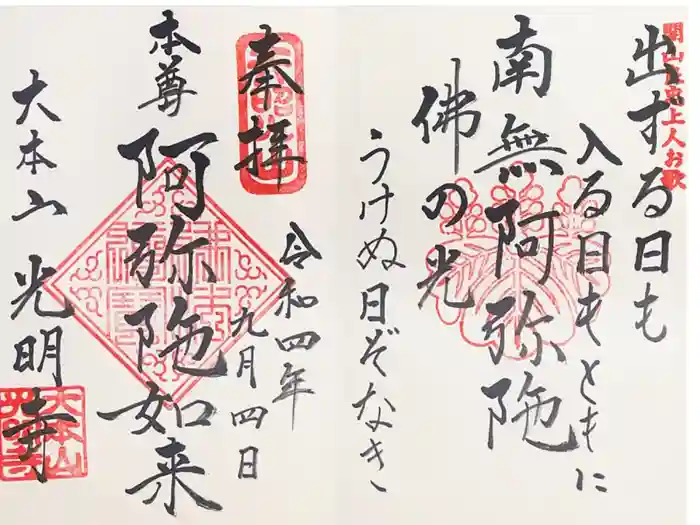 開山良忠上人お歌
出する日も
入る日もともに
南無阿弥陀
佛の光
うけぬ日ぞなき
奉拝
令和四年
九月四日
本尊
阿弥陀如来
大本山
光明寺